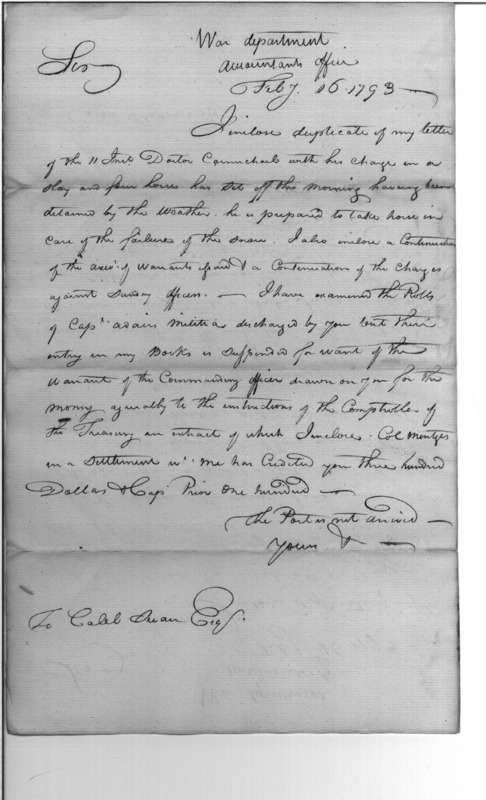 War department
Accountants office
Sir
Feby. 16. 1793
I inclose duplicate of my letter
of the 11 Inst. Doctor Carmichael with his charge in a
slay and four horses has set off this morning having been
detained by the weather. he is prepared to take horse in
case of the failure of the snow. I also inclose a Continuation
of the of warrants & a Continuation of the charges
against Sunday officers. — I have examined the Rolls
of Capt. adairs militia discharged by you but their
entry in my Books is suspended for want of the
warrant of the Commanding officer drawn on you for the
money agreeably to the instructions of the Comptroller of
the Treasury an extract of which I inclose. Col. Mentges
in a settlement wt. me has Credited you three hundred
Dollars & Capt Prior One hundred —
the Post is not arrived —
yours & —
To Caleb Swan Esqr.